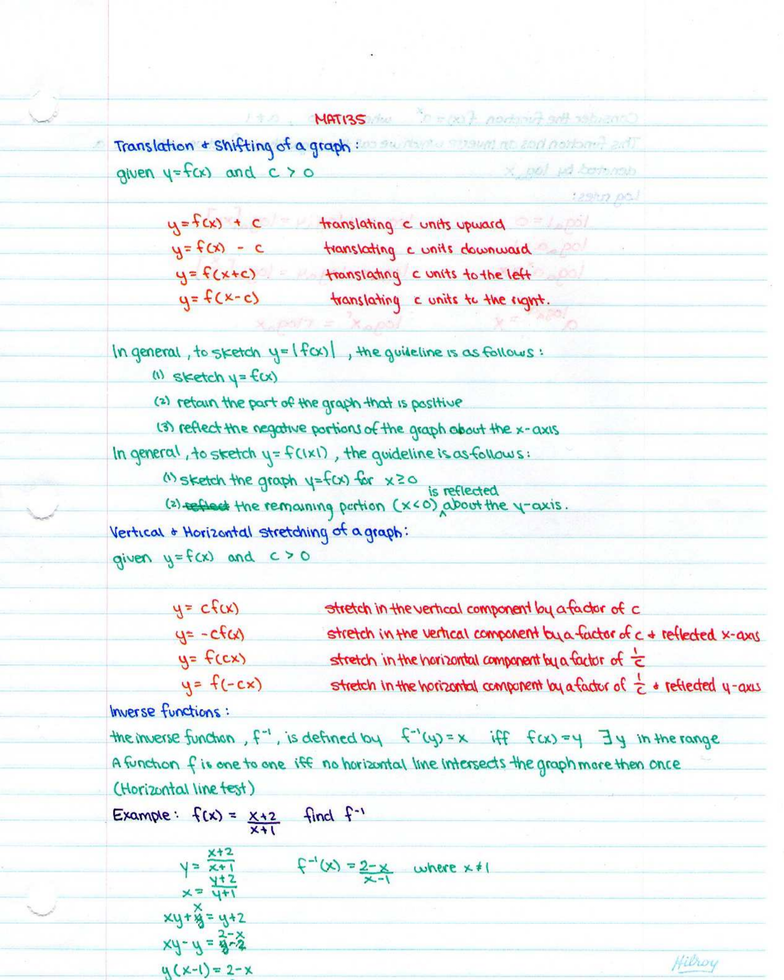 MAT135
Translation & Shifting of a graph:
given y=f(x) and c > 0
y=f(x) + c translating c units upward
y=f(x) - c translating c units downward
y=f(x+c) translating c units to the left
y=f(x-c) translating c units to the right.
In general, to sketch y=|f(x)|, the guideline is as follows:
(1) sketch y=f(x)
(2) retain the part of the graph that is positive
(3) reflect the negative portions of the graph about the x-axis
In general, to sketch y=f(|x|), the guideline is as follows:
(1) sketch the graph y=f(x) for x≥0
(2) reflect the remaining portion (x<0) is reflected about the y-axis.
Vertical & Horizontal stretching of a graph:
given y=f(x) and c > 0
y= cf(x) stretch in the vertical component by a factor of c
y= -cf(x) stretch in the vertical component by a factor of c & reflected x-axis
y= f(cx) stretch in the horizontal component by a factor of 1/c
y= f(-cx) stretch in the horizontal component by a factor of 1/c & reflected y-axis
Inverse functions:
the inverse function, f⁻¹, is defined by f⁻¹(y)=x iff f(x)=y ∃y in the range
A function f is one to one iff no horizontal line intersects the graph more then once
(Horizontal line test)
Example: f(x) = x+2/x+1 find f⁻¹
y= x+2/x+1 f⁻¹(x) = 2-x/x-1 where x≠1
x= y+2/y+1
xy+x = y+2
xy-y = 2-x
y(x-1) = 2-x
Hilroy